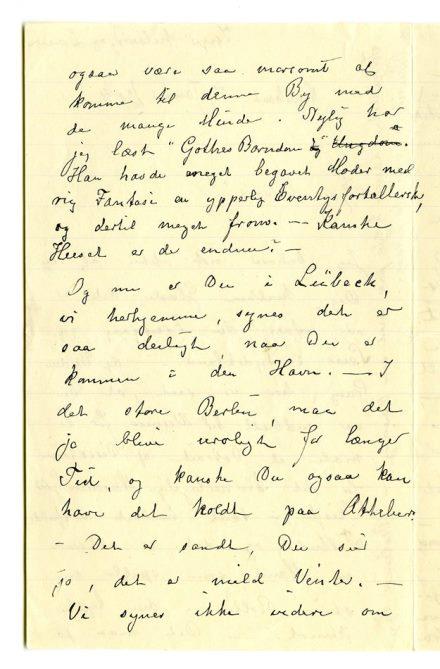 ogsaa være saa morsomt at
komme til denne By med
de mange Minder. Nylig har
jeg læst "Gothes Barndom og" Ungdom".
Han havde meget begavet Moder med
rig Fantasi en ypperlig Eventyrfortællersk,
og dertil meget from. — Kanske
Huset er der endnu? —
Og nu er Du i Lübeck,
vi herhjemme, synes det er
saa deiligt, naar Du er
kommen i den Havn. — I
det store Berlin, maa det
jo blive uroligt for længer
Tid, og kanske Du ogsaa kan
have det koldt paa Atelier.
— Det er sandt, Du sier
jo, det er mild Vinter. —
Vi synes ikke videre om